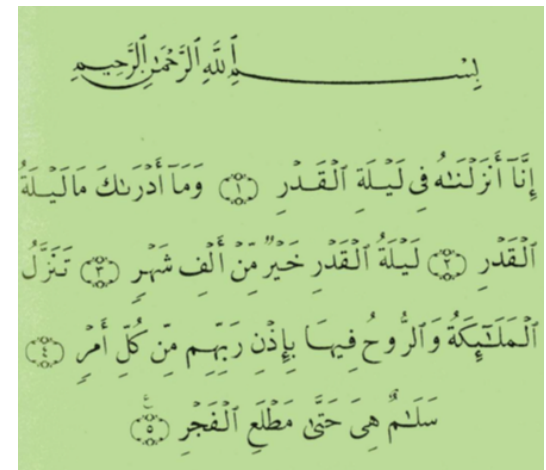 بِسْمِ ٱللَّهِ ٱلرَّحْمَٰنِ ٱلرَّحِيمِ
إِنَّآ أَنزَلْنَٰهُ فِى لَيْلَةِ ٱلْقَدْرِ ۝١ وَمَآ أَدْرَىٰكَ مَا لَيْلَةُ
ٱلْقَدْرِ ۝٢ لَيْلَةُ ٱلْقَدْرِ خَيْرٌ مِّنْ أَلْفِ شَهْرٍ ۝٣ تَنَزَّلُ
ٱلْمَلَٰٓئِكَةُ وَٱلرُّوحُ فِيهَا بِإِذْنِ رَبِّهِم مِّن كُلِّ أَمْرٍ ۝٤
سَلَٰمٌ هِىَ حَتَّىٰ مَطْلَعِ ٱلْفَجْرِ ۝٥